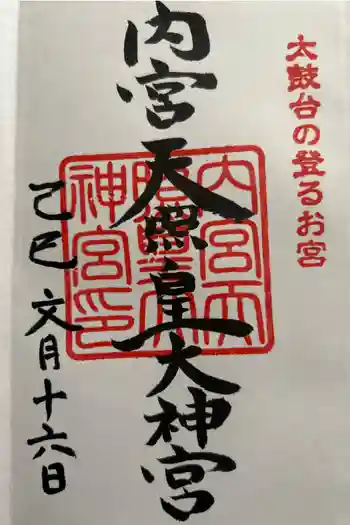 太鼓台の登るお宮
内宮天照皇大神宮
内宮天照皇大神宮印
己巳 文月十六日